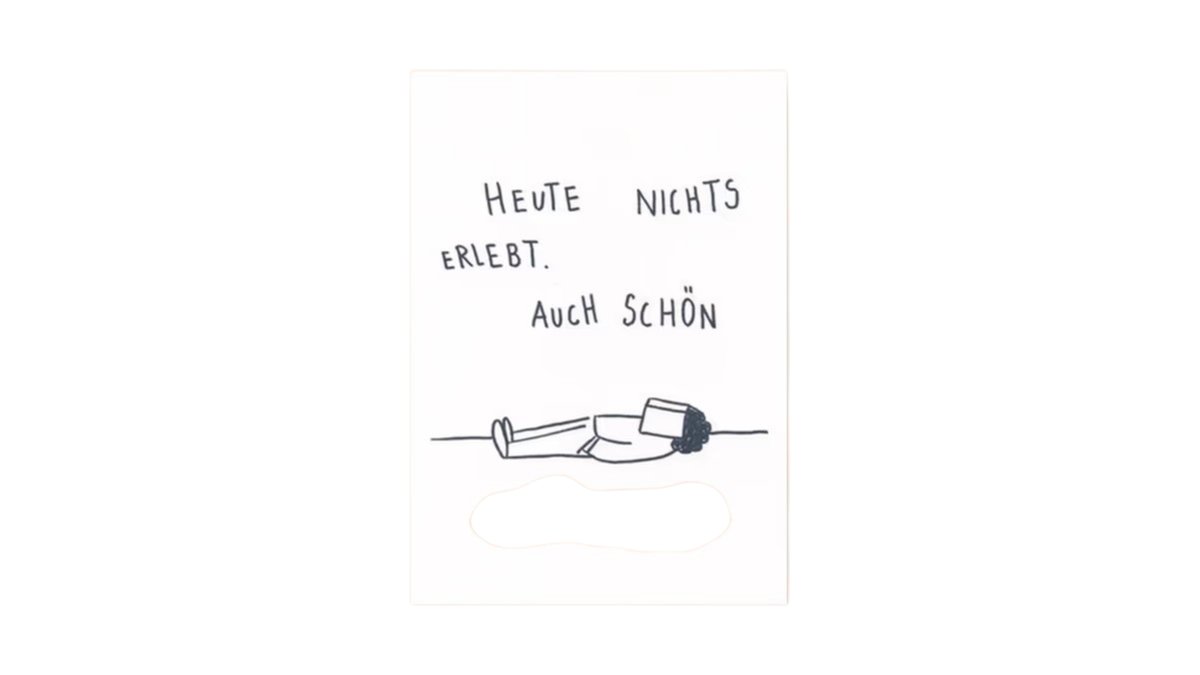 HEUTE NICHTS
ERLEBT.
AUCH SCHÖN